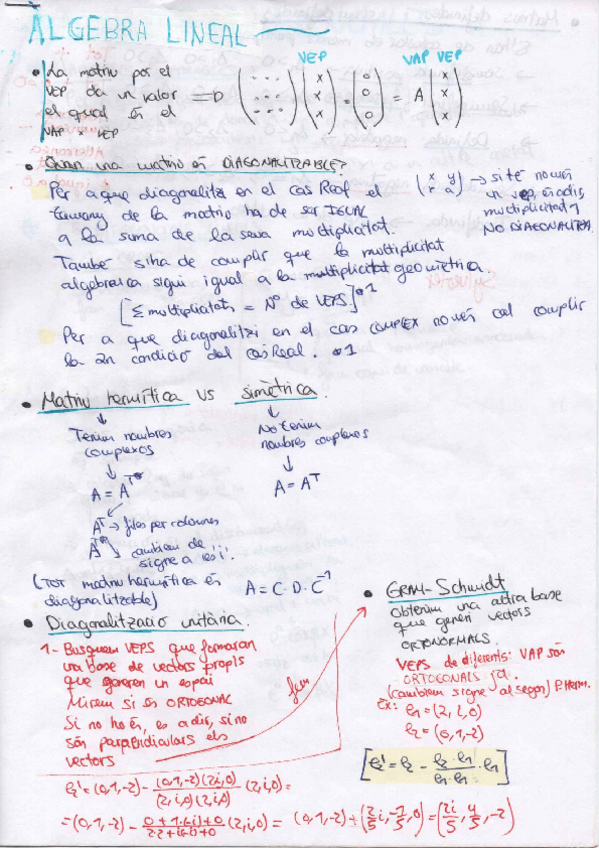 ÀLGEBRA LINEAL
VEP VAP VEP
• La matriu per el
VEP da un valor
el qual és el
VAP x VEP
⇒ ( ... ... ... ) ( x x x ) = ( 0 0 0 ) = A ( x x x )
• Quan una matriu és DIAGONALITZABLE?
Per a que diagonalitzi en el cas Real el
tamany de la matriu ha de ser IGUAL
a la suma de la seva multiplicitat.
→ si té només
un vep, és a dir,
multiplicitat 1
NO DIAGONALITZA
També s'ha de complir que la multiplicitat
algebraica sigui igual a la multiplicitat geomètrica.
[Σ multiplicitats = Nº de VEPS] *1
Per a que diagonalitzi en el cas COMPLEX només cal complir
la 2n condició del cas Real. *1
• Matriu hermítica VS simètrica.
Tenim nombres
complexos
No tenim
nombres complexos
A = Aᵀ*
A = Aᵀ
Aᵀ → files per columnes
Aᵀ* canviem de
signe a les 'i'.
(TOT matriu hermítica és
diagonalitzable)
A = C · D · C⁻¹
• Diagonalització unitària.
1- Busquem VEPS que formaran
una base de vectors propis
que generen un espai
Mirem si és ORTOGONAL
Si no ho és, es a dir, si no
són perpendiculars els
vectors
fem
• GRAM-Schmidt
Obtenim una altra base
que generi vectors
ORTONORMALS.
VEPS de diferents VAP són
ORTOGONALS ja.
(canviem signe al segon) P. Herm.
Ex: e₁ = (2, i, 0)
e₂ = (0, 1, -2)
[e₂' = e₂ - (e₂ · e₁)/(e₁ · e₁) · e₁]
e₂' = (0, 1, -2) - (0, 1, -2)(2, i, 0)/(2, i, 0)(2, i, 0) (2, i, 0) =